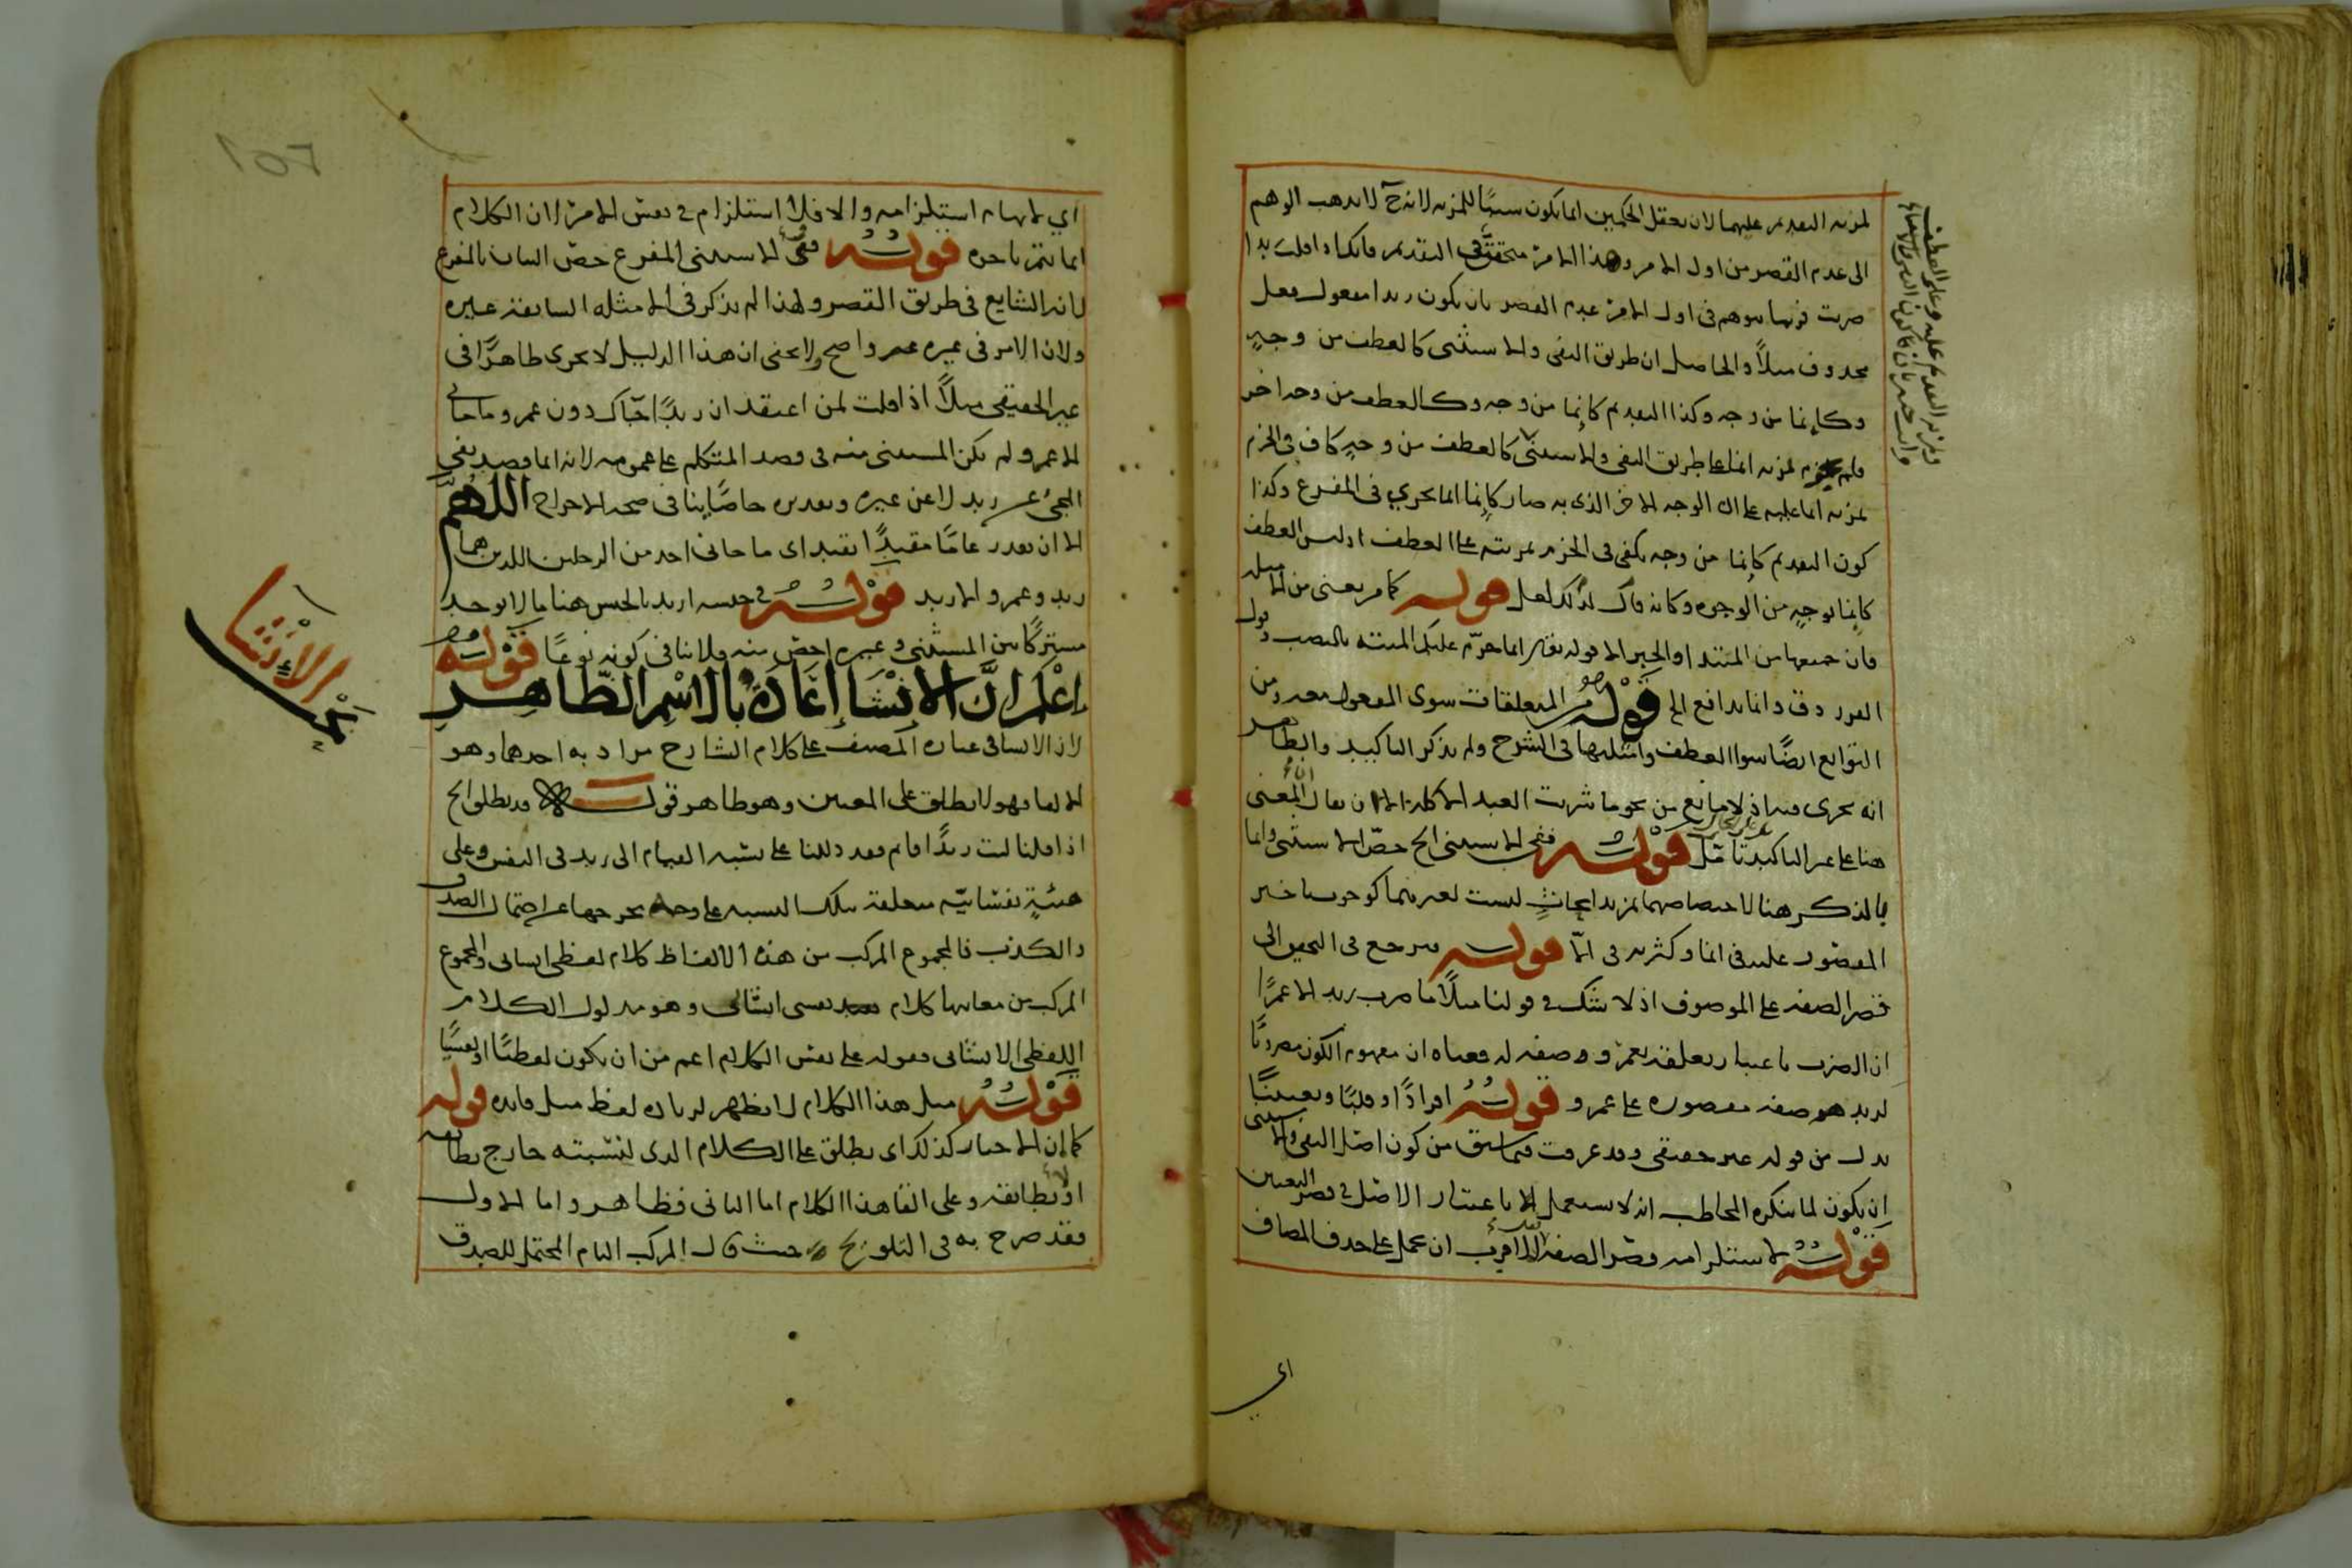 لمزية التقديم عليهما لان تعقل الحكمين انما يكون سببًا للمزية لانه ح لا يذهب الوهم
الى عدم القصر من اول الامر وهذا الامر متحقق في التقديم فانك اذا قلت زيدا
ضربت فربما يتوهم في اول الامر عدم القصر بان يكون زيدا مفعول فعل
محذوف مثلاً والحاصل ان طريق النفي والاستثنى كالعطف من وجهٍ
وكإنما من وجه وكذا التقديم كإنما من وجه وكالعطف من وجه اخر
فلم لمزية انما على طريق النفي والاستثنى كالعطف من وجهٍ كاف في الجزم
لمزية انما عليه على ان الوجه الاخر الذي به صار كإنما انما يجري في المفرغ وكذا
كون التقديم كإنما من وجه يكفي في الجزم بمزيته على العطف اذ ليس العطف
كإنما بوجهٍ من الوجوه وكانه قال لذلك لعل قوله كما مر يعني من امثلة
فان جميعها من المبتدا والخبر الا قوله تعالى انما حرّم عليكم الميتة بالنصب وقول
الفرزدق وانما يدافع الخ قوله المتعلقات سوى المفعول معه ومن
التوابع ايضًا سوا العطف وامثلتها في الشرح ولم يذكر التاكيد والظاهر
انه يجري فيه اذ لا مانع من نحو ما شربت العبد الا كله الا ان يقال المعنى
هنا على غير التاكيد تامل قوله ففي الاستثنى الخ خصّ الاستثنى وانما
بالذكر هنا لاختصاصهما بمزيد ابحاثٍ ليست لغيرهما كوجوب تاخير
المقصور عليه في انما وكثرته في الّا قوله فيرجع في التحقيق الى
قصر الصفة على الموصوف اذ لا شك في قولنا مثلًا ما ضرب زيد الا عمرًا
ان الضرب باعتبار تعلقه بعمرو وصفة له فمعناه ان مفهوم الكون مضروبًا
لزيد هو صفة مقصورة على عمرو قوله افرادًا وقلبًا وتعيينًا
بدل من قوله غير حقيقي وقد عرفت فيما سبق من كون اصل النفي والاستثنى
ان يكون لما ينكره المخاطب انه لا يستعمل الا باعتبار الاصل في قصر التعيين
قوله لاستلزامه قصر الصفة اقرب ان يحمل على حذف المضاف
ومزية التقديم عليه وعلى العطف
اي
اي لايهام استلزامه والا فلا استلزام في نفس الامر لان الكلام
انما يتم باخره قوله ففي الاستثنى المفرغ خصّ البيان بالمفرغ
لانه الشايع في طريق القصر ولهذا لم يذكر في الامثلة السابقة غيره
ولان الامر في غيره واضح ولا يخفى ان هذا الدليل لا يجري ظاهرًا في
غير الحقيقي مثلًا اذا قلت لمن اعتقد ان زيدًا جاك دون عمرو ما جاني
الا عمرو لم يكن المستثنى منه في قصد المتكلم على عمومه لانه انما قصد نفي
المجيء عن زيد لا عن غيره وتقديره خاصًّا ينافي صحة الاخراج اللهم
الا ان يقدر عامًا مقيدًا تقييدا اي ما جاني احد من الرجلين اللذين هما
زيد وعمرو الا زيد قوله في جنسه اريد بالجنس هنا ما لا يوجد
مشتركًا بين المستثنى وغيره اخص منه فلا ينافي كونه نوعًا قوله
اعلم ان الانشا اعاده بالاسم الظاهر
لان الانشا في عبارة المصنف على كلام الشارح مراد به احدهما وهو
الالقا فهو لا يطلق على المعنيين وهو ظاهر قوله قد يطلق الخ
اذا قلنا ليت زيدًا قايم فقد دللنا على نسبة القيام الى زيد في النفس وعلى
هيئةٍ نفسانيّة متعلقة بتلك النسبة على وجه يخرجها عن احتمال الصدق
والكذب فالمجموع المركب من هذه الالفاظ كلام لفظي انشائي والمجموع
المركب من معانيها كلام نفسي انشائي وهو مدلول الكلام
اللفظي الانشائي فقوله على نفس الكلام اعم من ان يكون لفظيًا او نفسيًا
قوله مثل هذا الكلام لا يظهر لزيادة لفظ مثل فايدة قوله
كما ان الاخبار كذلك اي يطلق على الكلام الذي لنسبته خارج تطابقه
او لا تطابقه وعلى القا هذا الكلام اما الثاني فظاهر واما الاول
فقد صرح به في التلويح حيث قال المركب التام المحتمل للصدق
بحث الانشا